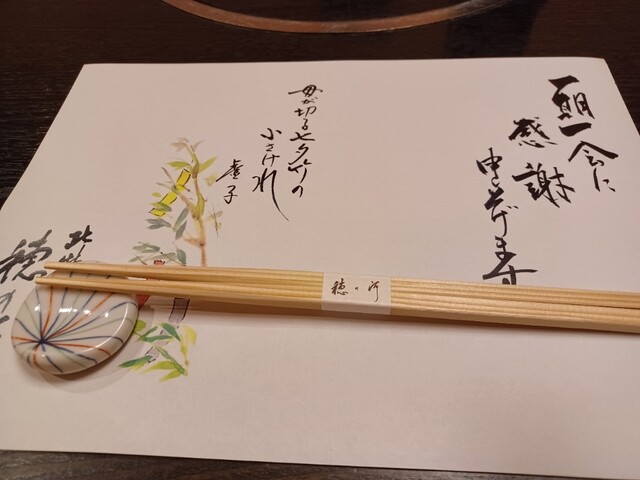 一期一会に
感謝
申しあげます
母が切る七夕竹の
小さけれ
虚子
北新
穂
穂の河